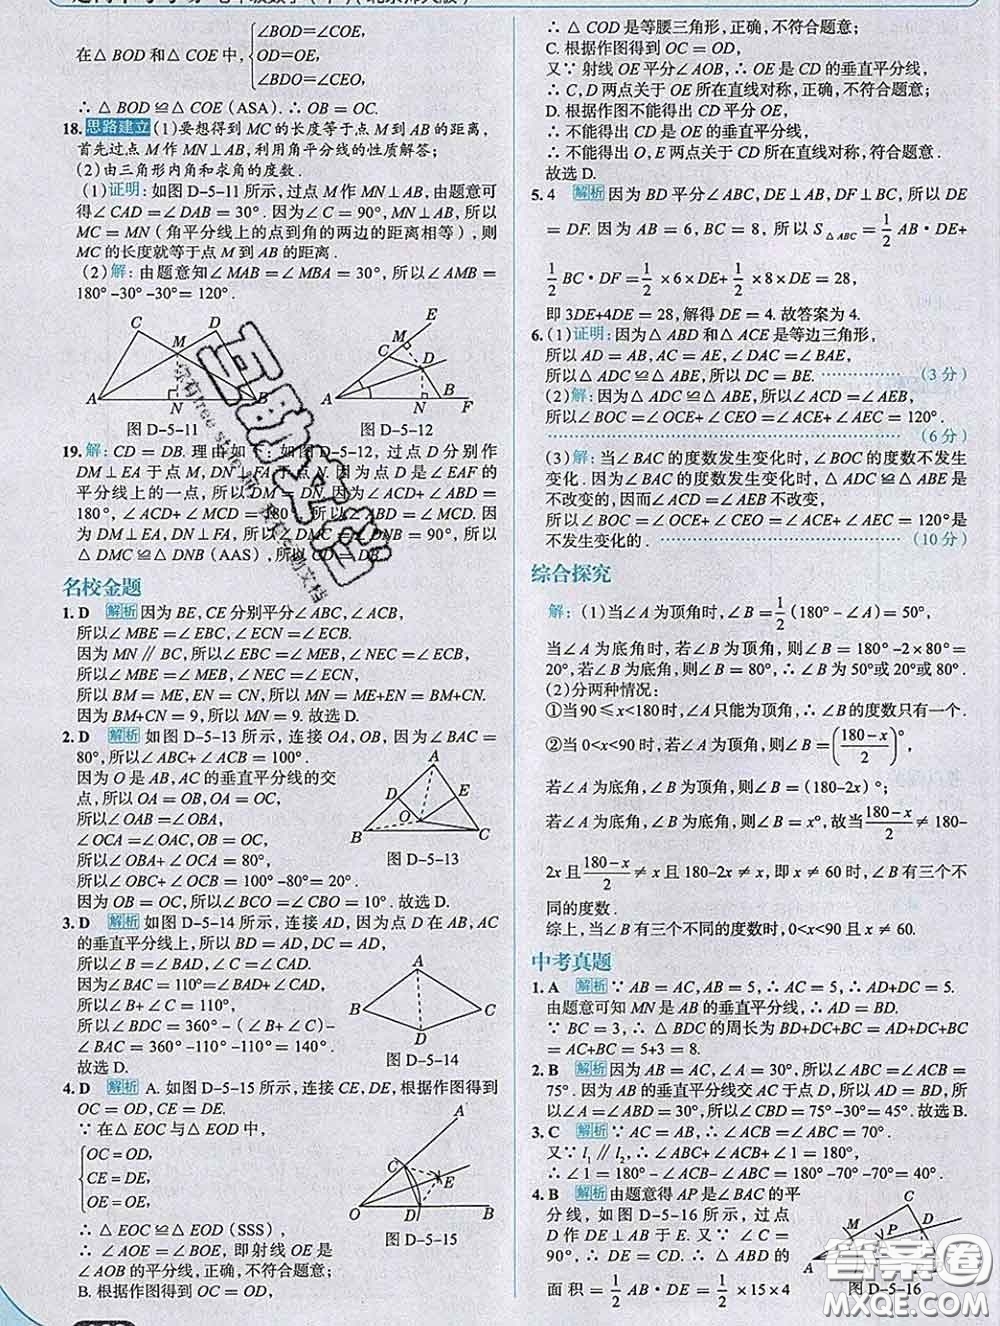 ∠BOD=∠COE,
在△BOD和△COE中, OD=OE,
∠BDO=∠CEO,
∴△BOD≌△COE(ASA). ∴OB=OC.
18. 思路建立 (1)要想得到MC的长度等于点M到AB的距离,
首先过点M作MN⊥AB,利用角平分线的性质解答;
(2)由三角形内角和求角的度数.
(1)证明:如图D-5-11所示,过点M作MN⊥AB,由题意可
得∠CAD=∠DAB=30°. 因为∠C=90°,MN⊥AB,所以
MC=MN(角平分线上的点到角的两边的距离相等),则
MC的长度就等于点M到AB的距离.
(2)解:由题意知∠MAB=∠MBA=30°,所以∠AMB=
180°-30°-30°=120°.
C D M A N B
E M C D A N B F
图D-5-11 图D-5-12
19. 解:CD=DB. 理由如下:如图D-5-12,过点D分别作
DM⊥EA于点M,DN⊥FA于点N. 因为点D是∠EAF的
平分线上的一点,所以DM=DN. 因为∠ACD+∠ABD=
180°,∠ACD+∠MCD=180°,所以∠ABD=∠MCD. 因
为DM⊥EA,DN⊥FA,所以∠DMC=∠DNB=90°,所以
△DMC≌△DNB(AAS),所以CD=DB.
名校金题
1. D 解析 因为BE,CE分别平分∠ABC,∠ACB,
所以∠MBE=∠EBC,∠ECN=∠ECB.
因为MN∥BC,所以∠MEB=∠EBC,∠NEC=∠ECB,
所以∠MBE=∠MEB,∠NEC=∠ECN,
所以BM=ME,EN=CN,所以MN=ME+EN=BM+CN.
因为BM+CN=9,所以MN=9. 故选D.
2. D 解析 如图D-5-13所示,连接OA,OB,因为∠BAC=
80°,所以∠ABC+∠ACB=100°.
因为O是AB,AC的垂直平分线的交
点,所以OA=OB,OA=OC,
所以∠OAB=∠OBA,
∠OCA=∠OAC,OB=OC,
所以∠OBA+∠OCA=80°,
所以∠OBC+∠OCB=100°-80°=20°.
因为OB=OC,所以∠BCO=∠CBO=10°. 故选D.
A E O B C
图D-5-13
3. D 解析 如图D-5-14所示,连接AD,因为点D在AB,AC
的垂直平分线上,所以BD=AD,DC=AD,
所以∠B=∠BAD,∠C=∠CAD.
因为∠BAC=110°=∠BAD+∠CAD,
所以∠B+∠C=110°,
所以∠BDC=360°-(∠B+∠C)-
∠BAC=360°-110°-110°=140°.
故选D.
A B C D
图D-5-14
4. D 解析 A. 如图D-5-15所示,连接CE,DE,根据作图得到
OC=OD,CE=DE.
∵在△EOC与△EOD中,
OC=OD,
CE=DE,
OE=OE,
∴△EOC≌△EOD(SSS).
∴∠AOE=∠BOE,即射线OE是
∠AOB的平分线,正确,不符合题意;
B. 根据作图得到OC=OD,
A C E O D B
图D-5-15
∴△COD是等腰三角形,正确,不符合题意;
C. 根据作图得到OC=OD,
又∵射线OE平分∠AOB,∴OE是CD的垂直平分线.
∴C,D两点关于OE所在直线对称,正确,不符合题意;
D. 根据作图不能得出CD平分OE,
∴CD不是OE的垂直平分线,
∴不能得出O,E两点关于CD所在直线对称,符合题意.
故选D.
5. 4 解析 因为BD平分∠ABC,DE⊥AB,DF⊥BC,所以DE
=DF. 因为AB=6,BC=8,所以S△ABC=1/2AB·DE+
1/2BC·DF=1/2×6×DE+1/2×8×DE=28,
即3DE+4DE=28,解得DE=4. 故答案为4.
6. (1)证明:因为△ABD和△ACE是等边三角形,
所以AD=AB,AC=AE,∠DAC=∠BAE,
所以△ADC≌△ABE,所以DC=BE. (3分)
(2)解:因为△ADC≌△ABE,所以∠ACD=∠AEB,
所以∠BOC=∠OCE+∠CEO=∠ACE+∠AEC=120°.
(6分)
(3)解:当∠BAC的度数发生变化时,∠BOC的度数不发生
变化. 因为∠BAC的度数发生变化时,△ADC≌△ABE是
不改变的,因而∠ACD=∠AEB不改变,
所以∠BOC=∠OCE+∠CEO=∠ACE+∠AEC=120°是
不发生变化的. (10分)
综合探究
解:(1)当∠A为顶角时,∠B=1/2(180°-∠A)=50°,
当∠A为底角时,若∠B为顶角,则∠B=180°-2×80°=
20°,若∠B为底角,则∠B=80°,∴∠B为50°或20°或80°.
(2)分两种情况:
①当90≤x<180时,∠A只能为顶角,∴∠B的度数只有一个.
②当0<x<90时,若∠A为顶角,则∠B=((180-x)/2)°,
若∠A为底角,∠B为顶角,则∠B=(180-2x)°;
若∠A为底角,∠B为底角,则∠B=x°,故当(180-x)/2≠180-
2x且(180-x)/2≠x且180-2x≠x,即x≠60时,∠B有三个不
同的度数.
综上,当∠B有三个不同的度数时,0<x<90且x≠60.
中考真题
1. A 解析 ∵AB=AC,AB=5,∴AC=5,∴AD+DC=5.
由题意可知MN是AB的垂直平分线,∴AD=BD.
∵BC=3,∴△BDC的周长为BD+DC+BC=AD+DC+BC
=AC+BC=5+3=8.
2. B 解析 因为AB=AC,∠A=30°,所以∠ABC=∠ACB=
75°. 因为AB的垂直平分线交AC于点D,所以AD=BD,所
以∠A=∠ABD=30°,所以∠CBD=75°-30°=45°. 故选B.
3. C 解析 ∵AC=AB,∴∠ACB=∠ABC=70°.
又∵l₁∥l₂,∴∠ACB+∠ABC+∠1=180°,
∴∠1=180°-∠ACB-∠ABC=180°-70°-70°=40°.
4. B 解析 由题意得AP是∠BAC的平
分线,如图D-5-16所示,过点
D作DE⊥AB于E. 又∵∠C=
90°,∴DE=CD. ∴△ABD的
面积=1/2AB·DE=1/2×15×4
C M P D A
图D-5-16
答案圈
MXQE.COM